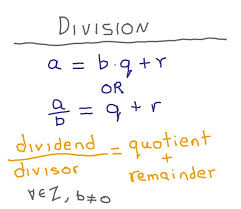 DIVISION
a = b·q+r
OR
a/b = q + r
dividend/divisor = quotient + remainder
∀∈Z, b≠0